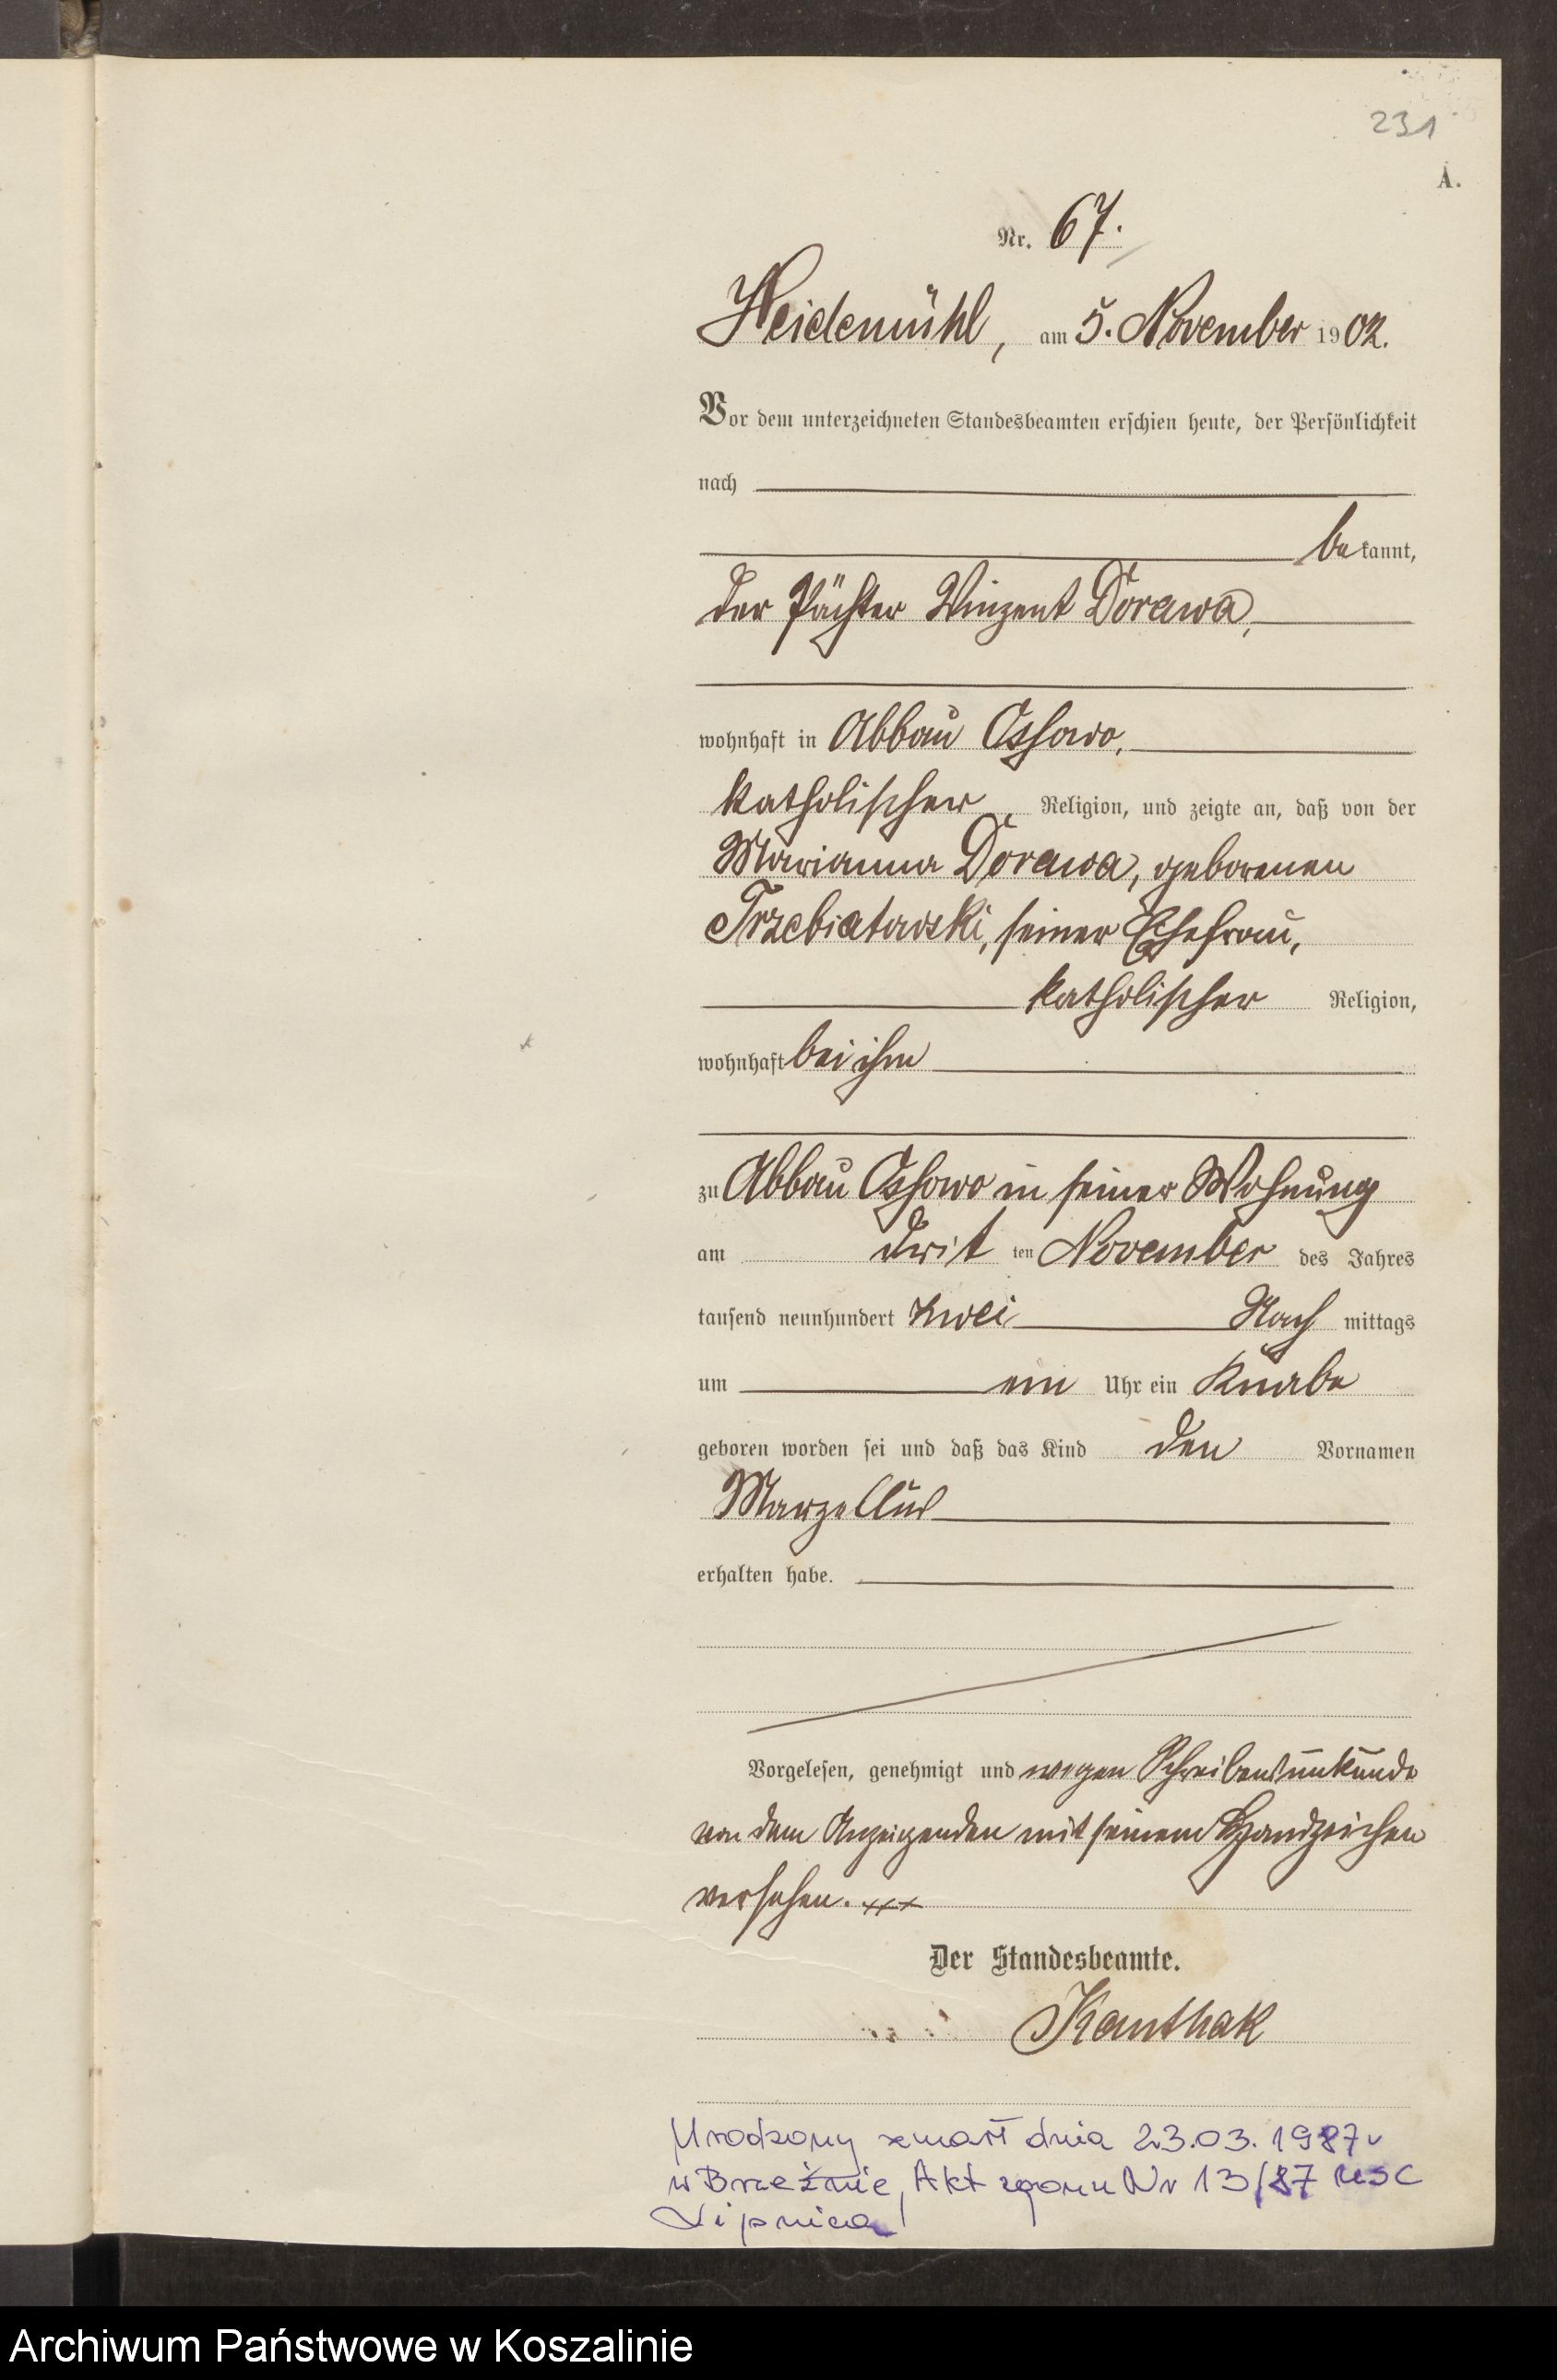 231
A.
Nr. 67.
Heidemühl, am 5. November 1902.
Vor dem unterzeichneten Standesbeamten erschien heute, der Persönlichkeit
nach
bekannt,
der Pächter Vinzent Dorawa,
wohnhaft in Abbau Ossowo,
katholischer Religion, und zeigte an, daß von der
Marianna Dorawa, geborenen
Trzebiatowski, seiner Ehefrau,
katholischer Religion,
wohnhaft bei ihm
zu Abbau Ossowo in seiner Wohnung
am dritten November des Jahres
tausend neunhundert zwei Nachmittags
um ein Uhr ein Knabe
geboren worden sei und daß das Kind den Vornamen
Marzellus
erhalten habe.
Vorgelesen, genehmigt und wegen Schreibensunkunde
von dem Anzeigenden mit seinem Handzeichen
versehen. +++
Der Standesbeamte.
Kanthak
Urodzony zmarł dnia 23.03.1987 r
w Brzeźnie, Akt zgonu Nr 13/87 USC
Lipnica
Archiwum Państwowe w Koszalinie